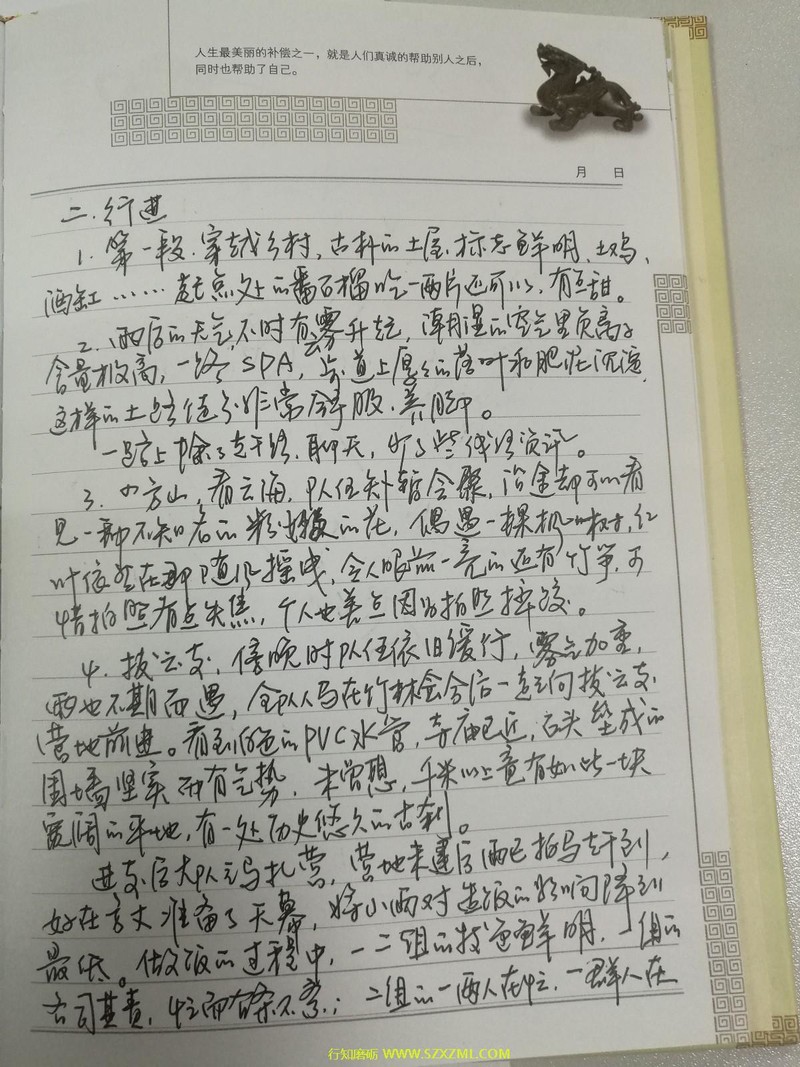 人生最美丽的补偿之一，就是人们真诚的帮助别人之后，
同时也帮助了自己。
月 日
二.行进
1.第一段.穿越乡村,古朴的土屋.标志鲜明.土鸡、
酒缸……起点处的番石榴吃一两片还可以,有点甜。
2.雨后的天气,不时有云雾升起,潮湿的空气里负离子
含量极高,一路SPA,步道上厚厚的落叶和肥花沉淀,
这样的土路径分外非常舒服.养脚。
一路上除了赶干路.聊天,听了些线路资讯。
3.四方山,看云海.队伍短暂会聚,沿途却可以看
见一种不知名的粉嫩的花,偶遇一棵枫树,红
叶依然在那随风摇曳,令人眼前一亮的还有竹笋,可
惜拍照有点失焦,个人也差点因为拍照摔跤。
4.拔云寺,傍晚时队伍依旧缓行,雾气加重,
雨也不期而遇,全队人马在竹林会合后一起向拔云寺
营地前进。看到白色的PVC水管,寺庙已近,石头垒成的
围墙坚实而有气势,未曾想,千米以上竟有如此一块
宽阔的平地,有一处历史悠久的古刹。
进寺后大队立马扎营,营地未建后雨已拍马赶到,
好在方丈准备了天幕,将小雨对造饭的影响降到
最低。做饭的过程中,一二组的技艺鲜明,一组的
各司其责,忙而有条不紊;二组的一两人在忙,一群人在
行知磨砺 WWW.SZXZML.COM